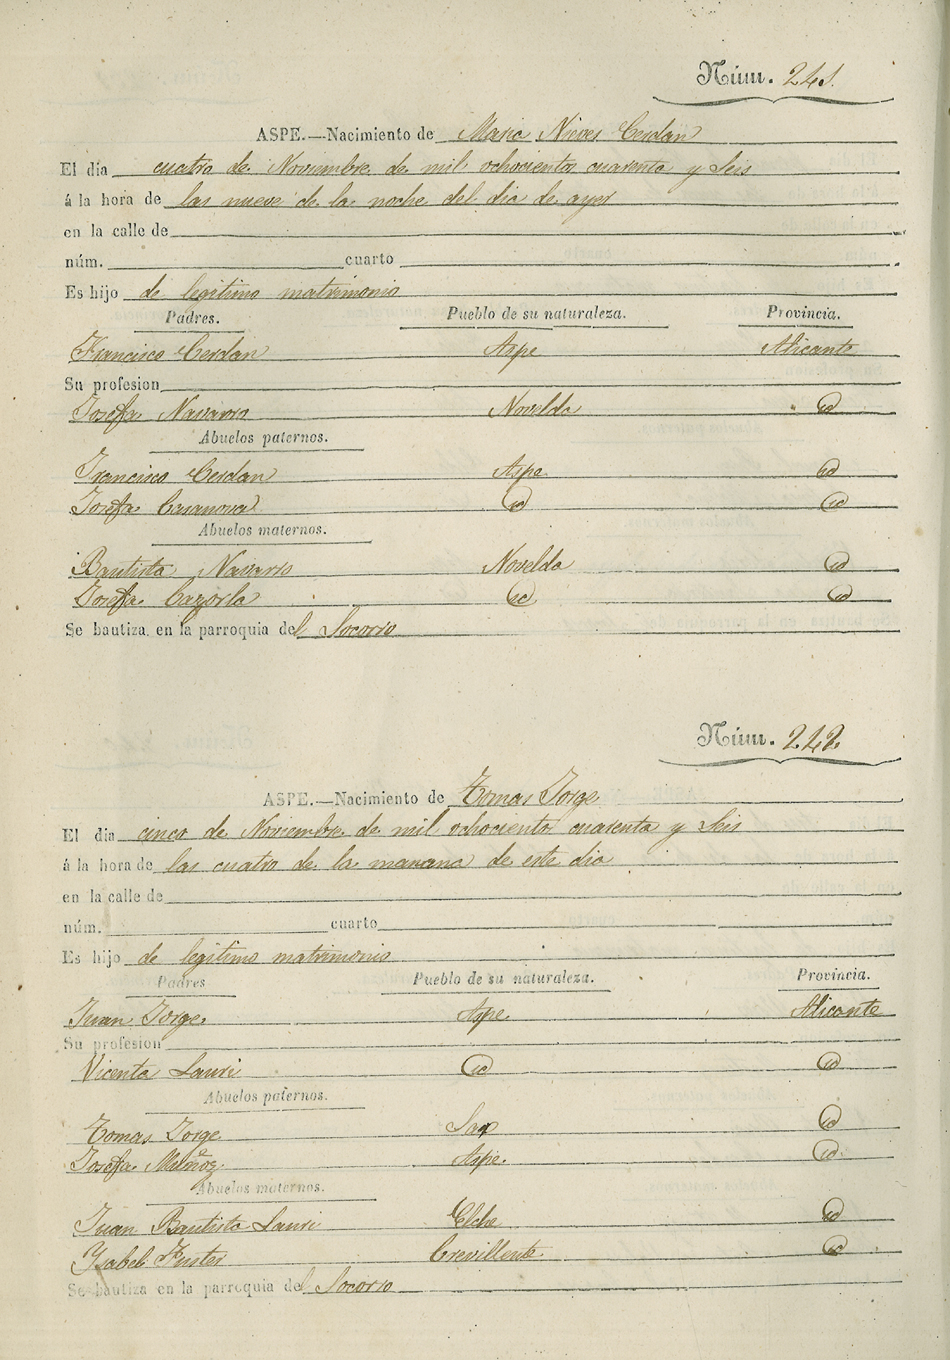 Núm. 241.
ASPE.—Nacimiento de Maria Nieves Cerdan
El dia cuatro de Noviembre de mil ochocientos cuarenta y Seis
á la hora de las nueve de la noche del dia de ayer
en la calle de
núm. cuarto
Es hijo de legitimo matrimonio
Padres. Pueblo de su naturaleza. Provincia.
Francisco Cerdan Aspe Alicante
Su profesion
Josefa Navarro Novelda id
Abuelos paternos.
Francisco Cerdan Aspe id
Josefa Casanova id id
Abuelos maternos.
Bautista Navarro Novelda id
Josefa Cazorla id id
Se bautiza en la parroquia del Socorro
Núm. 242
ASPE.—Nacimiento de Tomas Jorge
El dia cinco de Noviembre de mil ochocientos cuarenta y Seis
á la hora de las cuatro de la manana de este dia
en la calle de
núm. cuarto
Es hijo de legitimo matrimonio
Padres Pueblo de su naturaleza. Provincia.
Juan Jorge Aspe Alicante
Su profesion
Vicenta Lauri id id
Abuelos paternos.
Tomas Jorge Sax id
Josefa Muñoz Aspe id
Abuelos maternos.
Juan Bautista Lauri Elche id
Ysabel Fuster Crevillente id
Se bautiza en la parroquia del Socorro